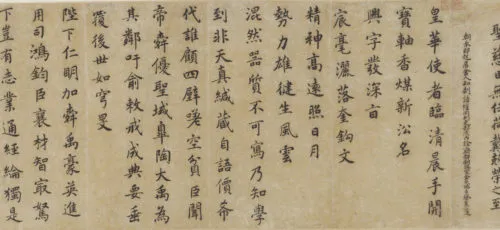 皇華使者臨清晨手開
寶軸香煤新沄名
興字發深亩
宸毫灑落金鈎文
精神高遠照日月
勢力雄健生風雲
混然器質不可寫乃知學
到非天真緘藏自語價希
代誰顧四壁嗟空貧臣聞
帝舜優聖域皐陶大禹為
其鄰吁俞敕戒成典要垂
覆後世如穹旻
陛下仁明加舜禹豪英進
用司鴻鈞臣襄材智最駑
下豈有志業通經綸獨是